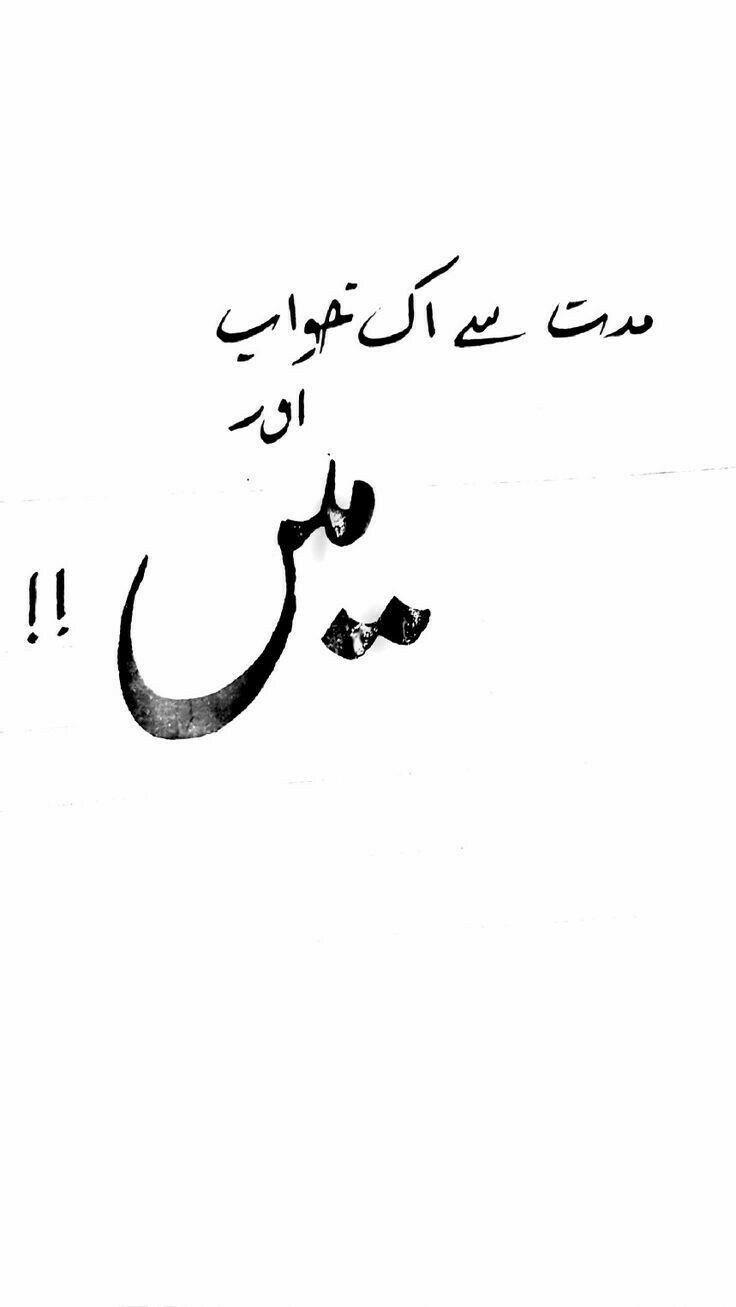 مدت سے اک خواب
اور
میں !!